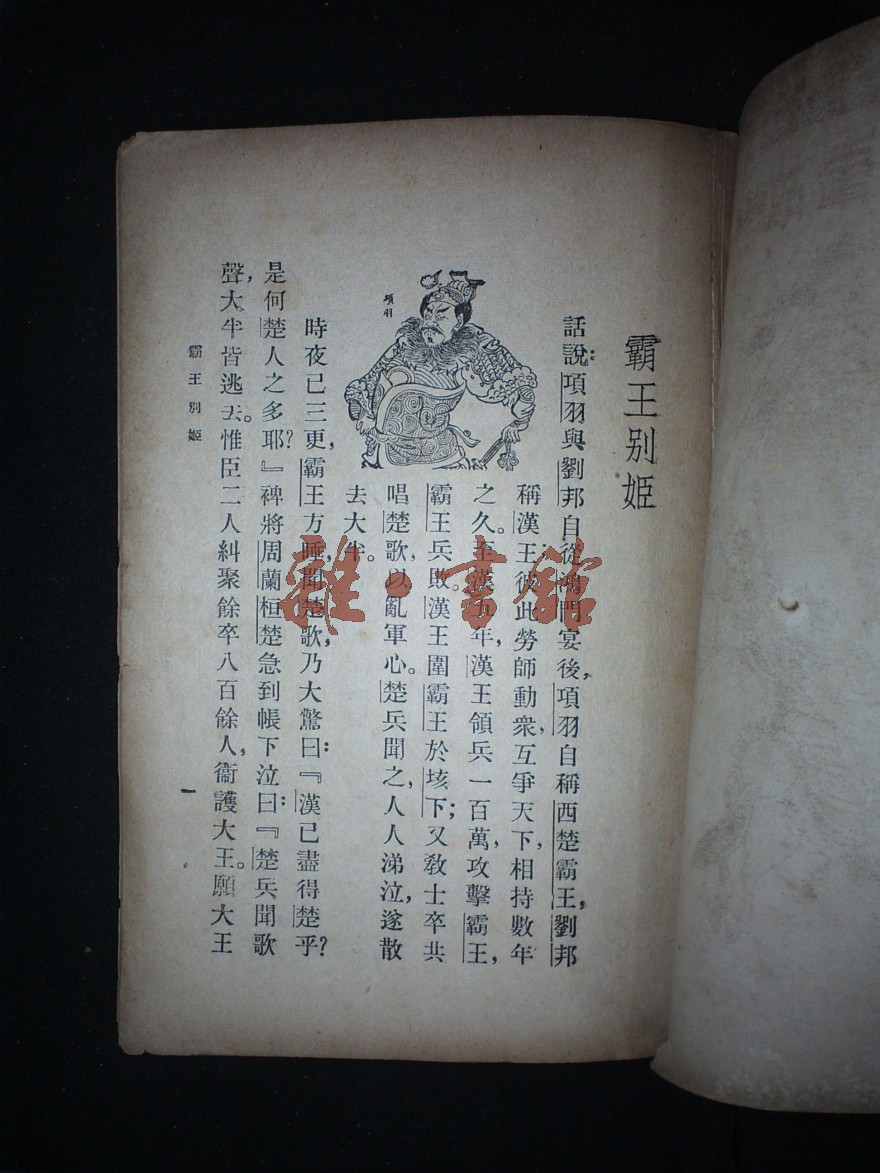 霸王别姬
話說：項羽與劉邦自從鴻門宴後，項羽自稱西楚霸王，劉邦
稱漢王，彼此勞師動衆，互爭天下，相持數年
之久。至漢五年，漢王領兵一百萬，攻擊霸王，
霸王兵敗。漢王圍霸王於垓下；又敎士卒共
唱楚歌，以亂軍心。楚兵聞之，人人涕泣，遂散
去大半。
項羽
時夜已三更，霸王方睡，聞楚歌，乃大驚曰：『漢已盡得楚乎？
是何楚人之多耶？』裨將周蘭桓楚急到帳下泣曰：『楚兵聞歌
聲，大半皆逃去。惟臣二人糾聚餘卒八百餘人，衞護大王。願大王
霸王別姬
一
雜·書館